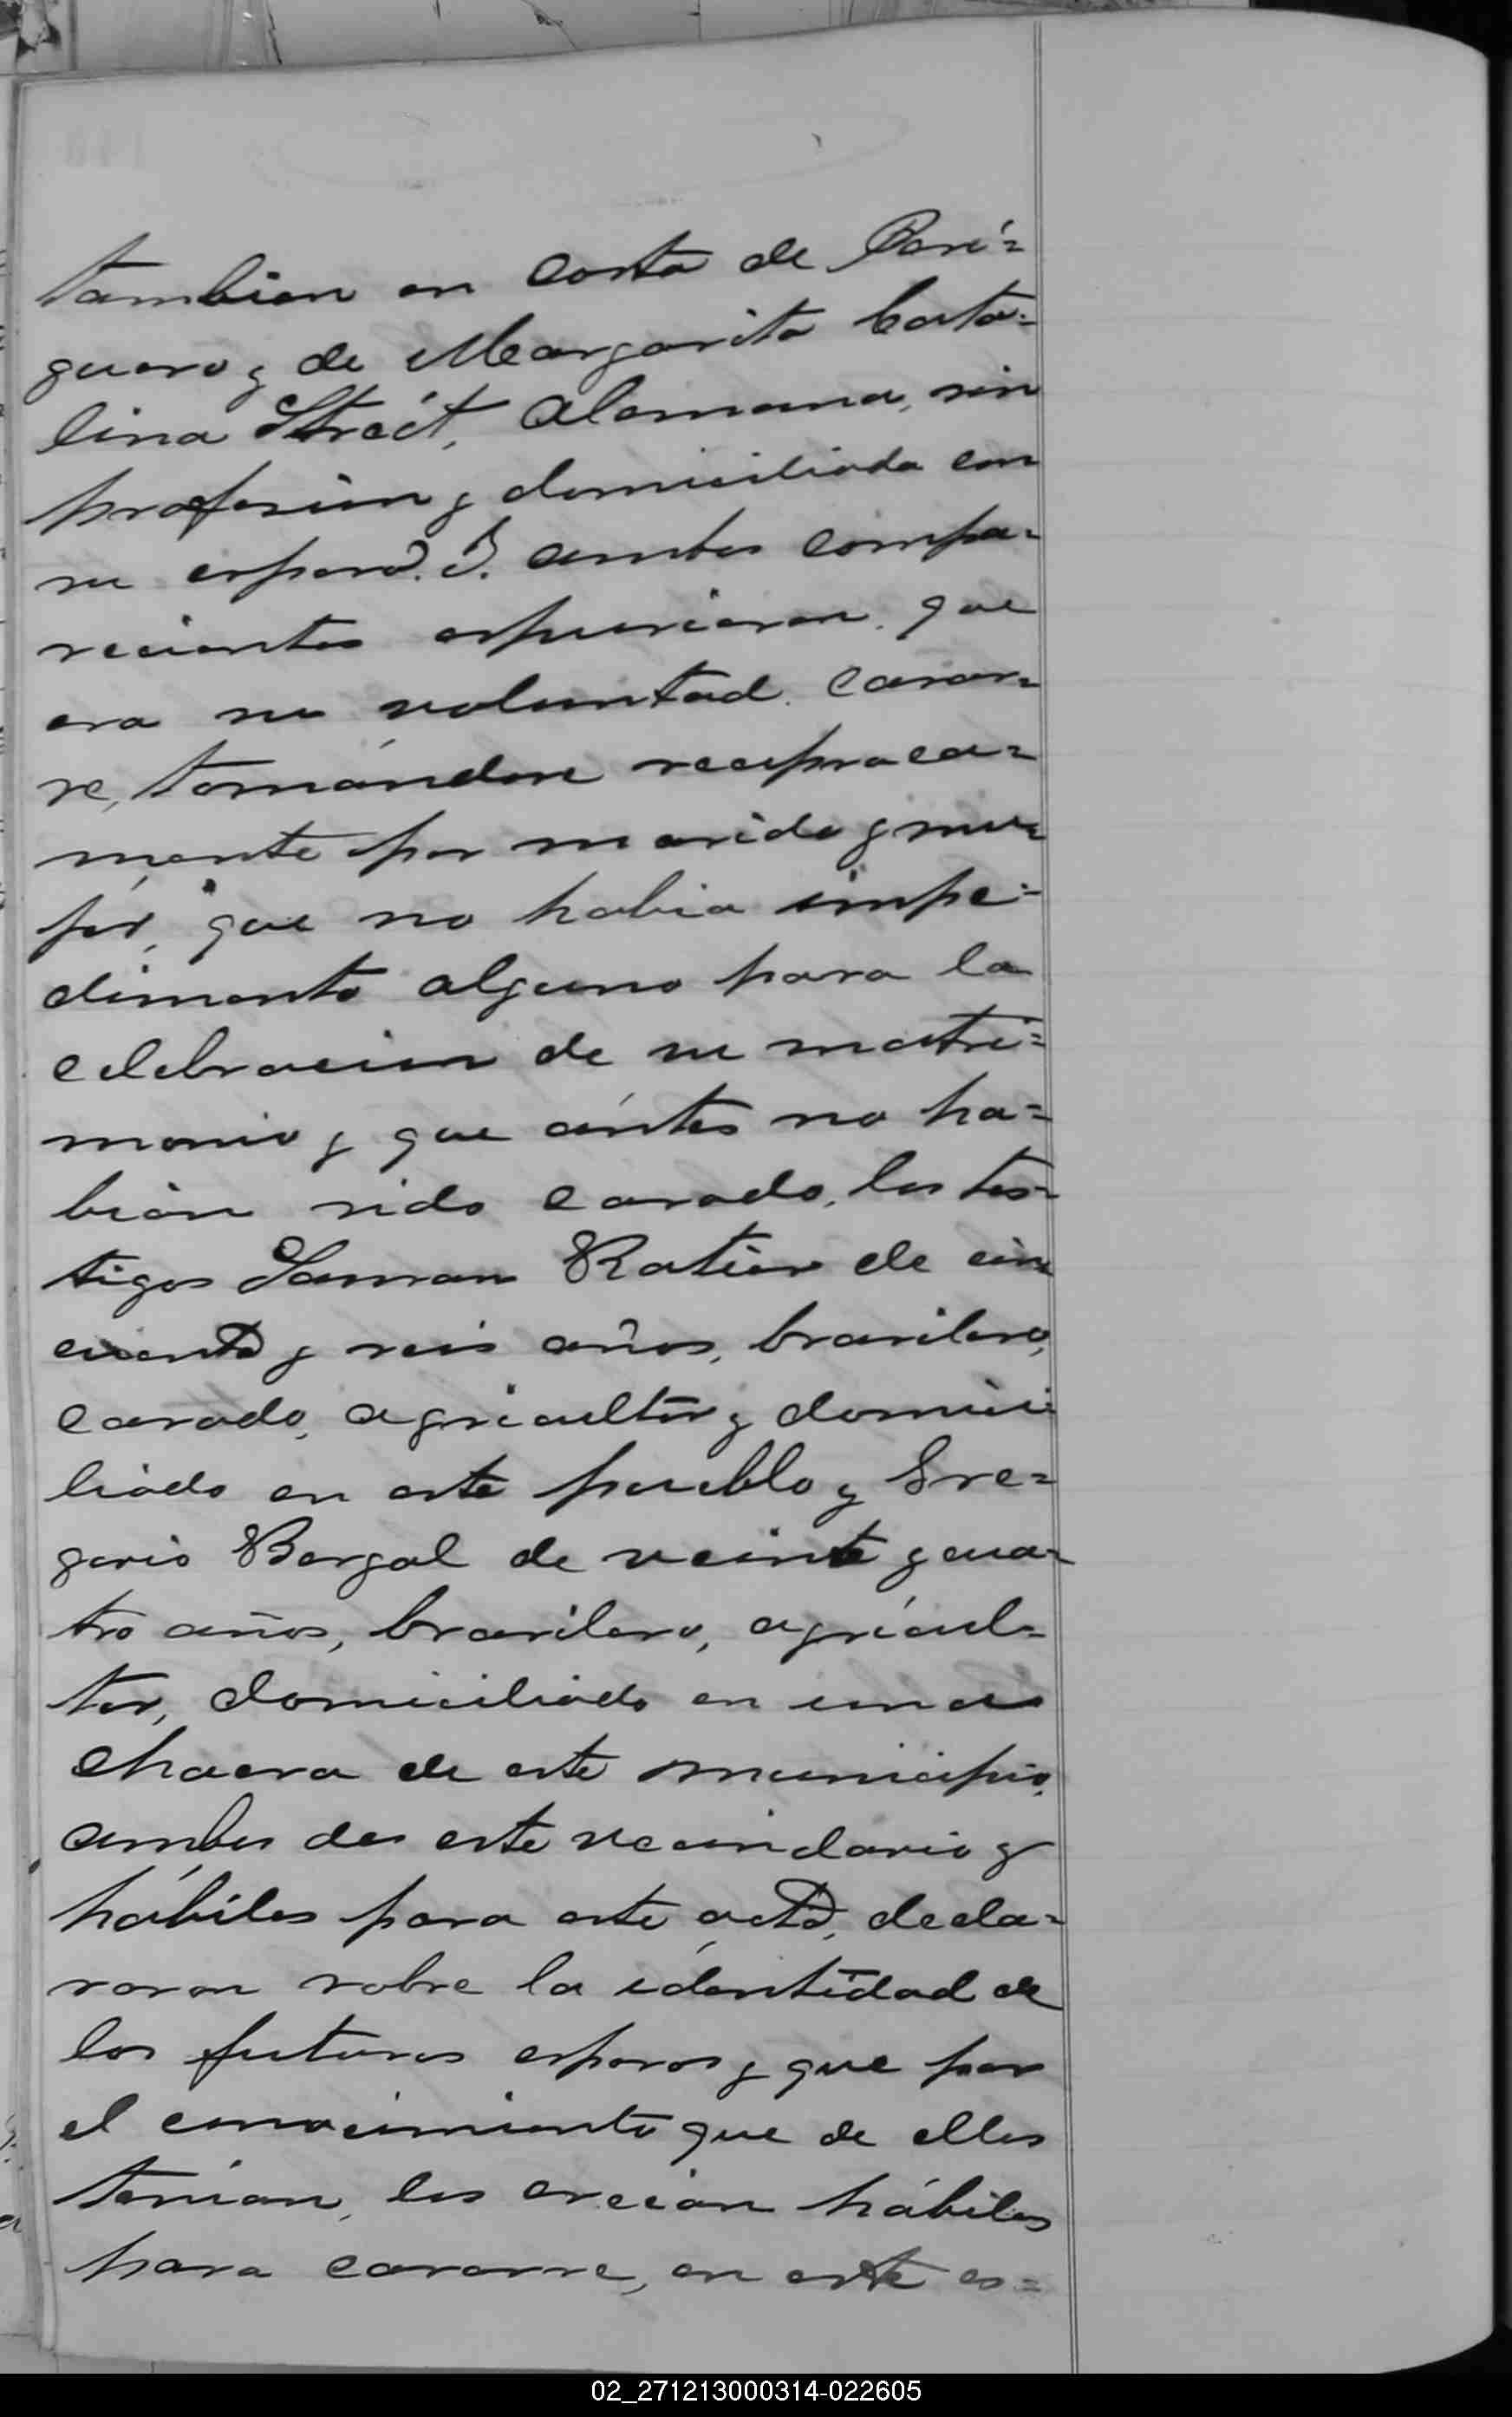 tambien en costa de Pari=
guero y de Margarita Cata=
lina Strect, Alemana, sin
profesion y domiciliada con
su esposo. I. ambos compa=
recientes espusieron que
era su voluntad casar=
se, tomándose reciproca=
mente por marido y mu=
jer, que no habia impe=
dimento alguno para la
celebracion de su matri=
monio y que ántes no ha=
bian sido casado, los tes=
tigos Ratier de cin
cuenta y seis años, brasilero,
casado, agricultor y domici
liado en este pueblo y Gre=
gorio Bergal de veinte y cua=
tro años, brasilero, agricul=
tor, domiciliado en una
chacra de este municipio,
ambos de este vecindario y
hábiles para este acto, decla=
raron sobre la identidad de
los futuros esposos y que por
el conocimiento que de ellos
tenian, los creian hábiles
para casarse, en este es=
02_271213000314-022605